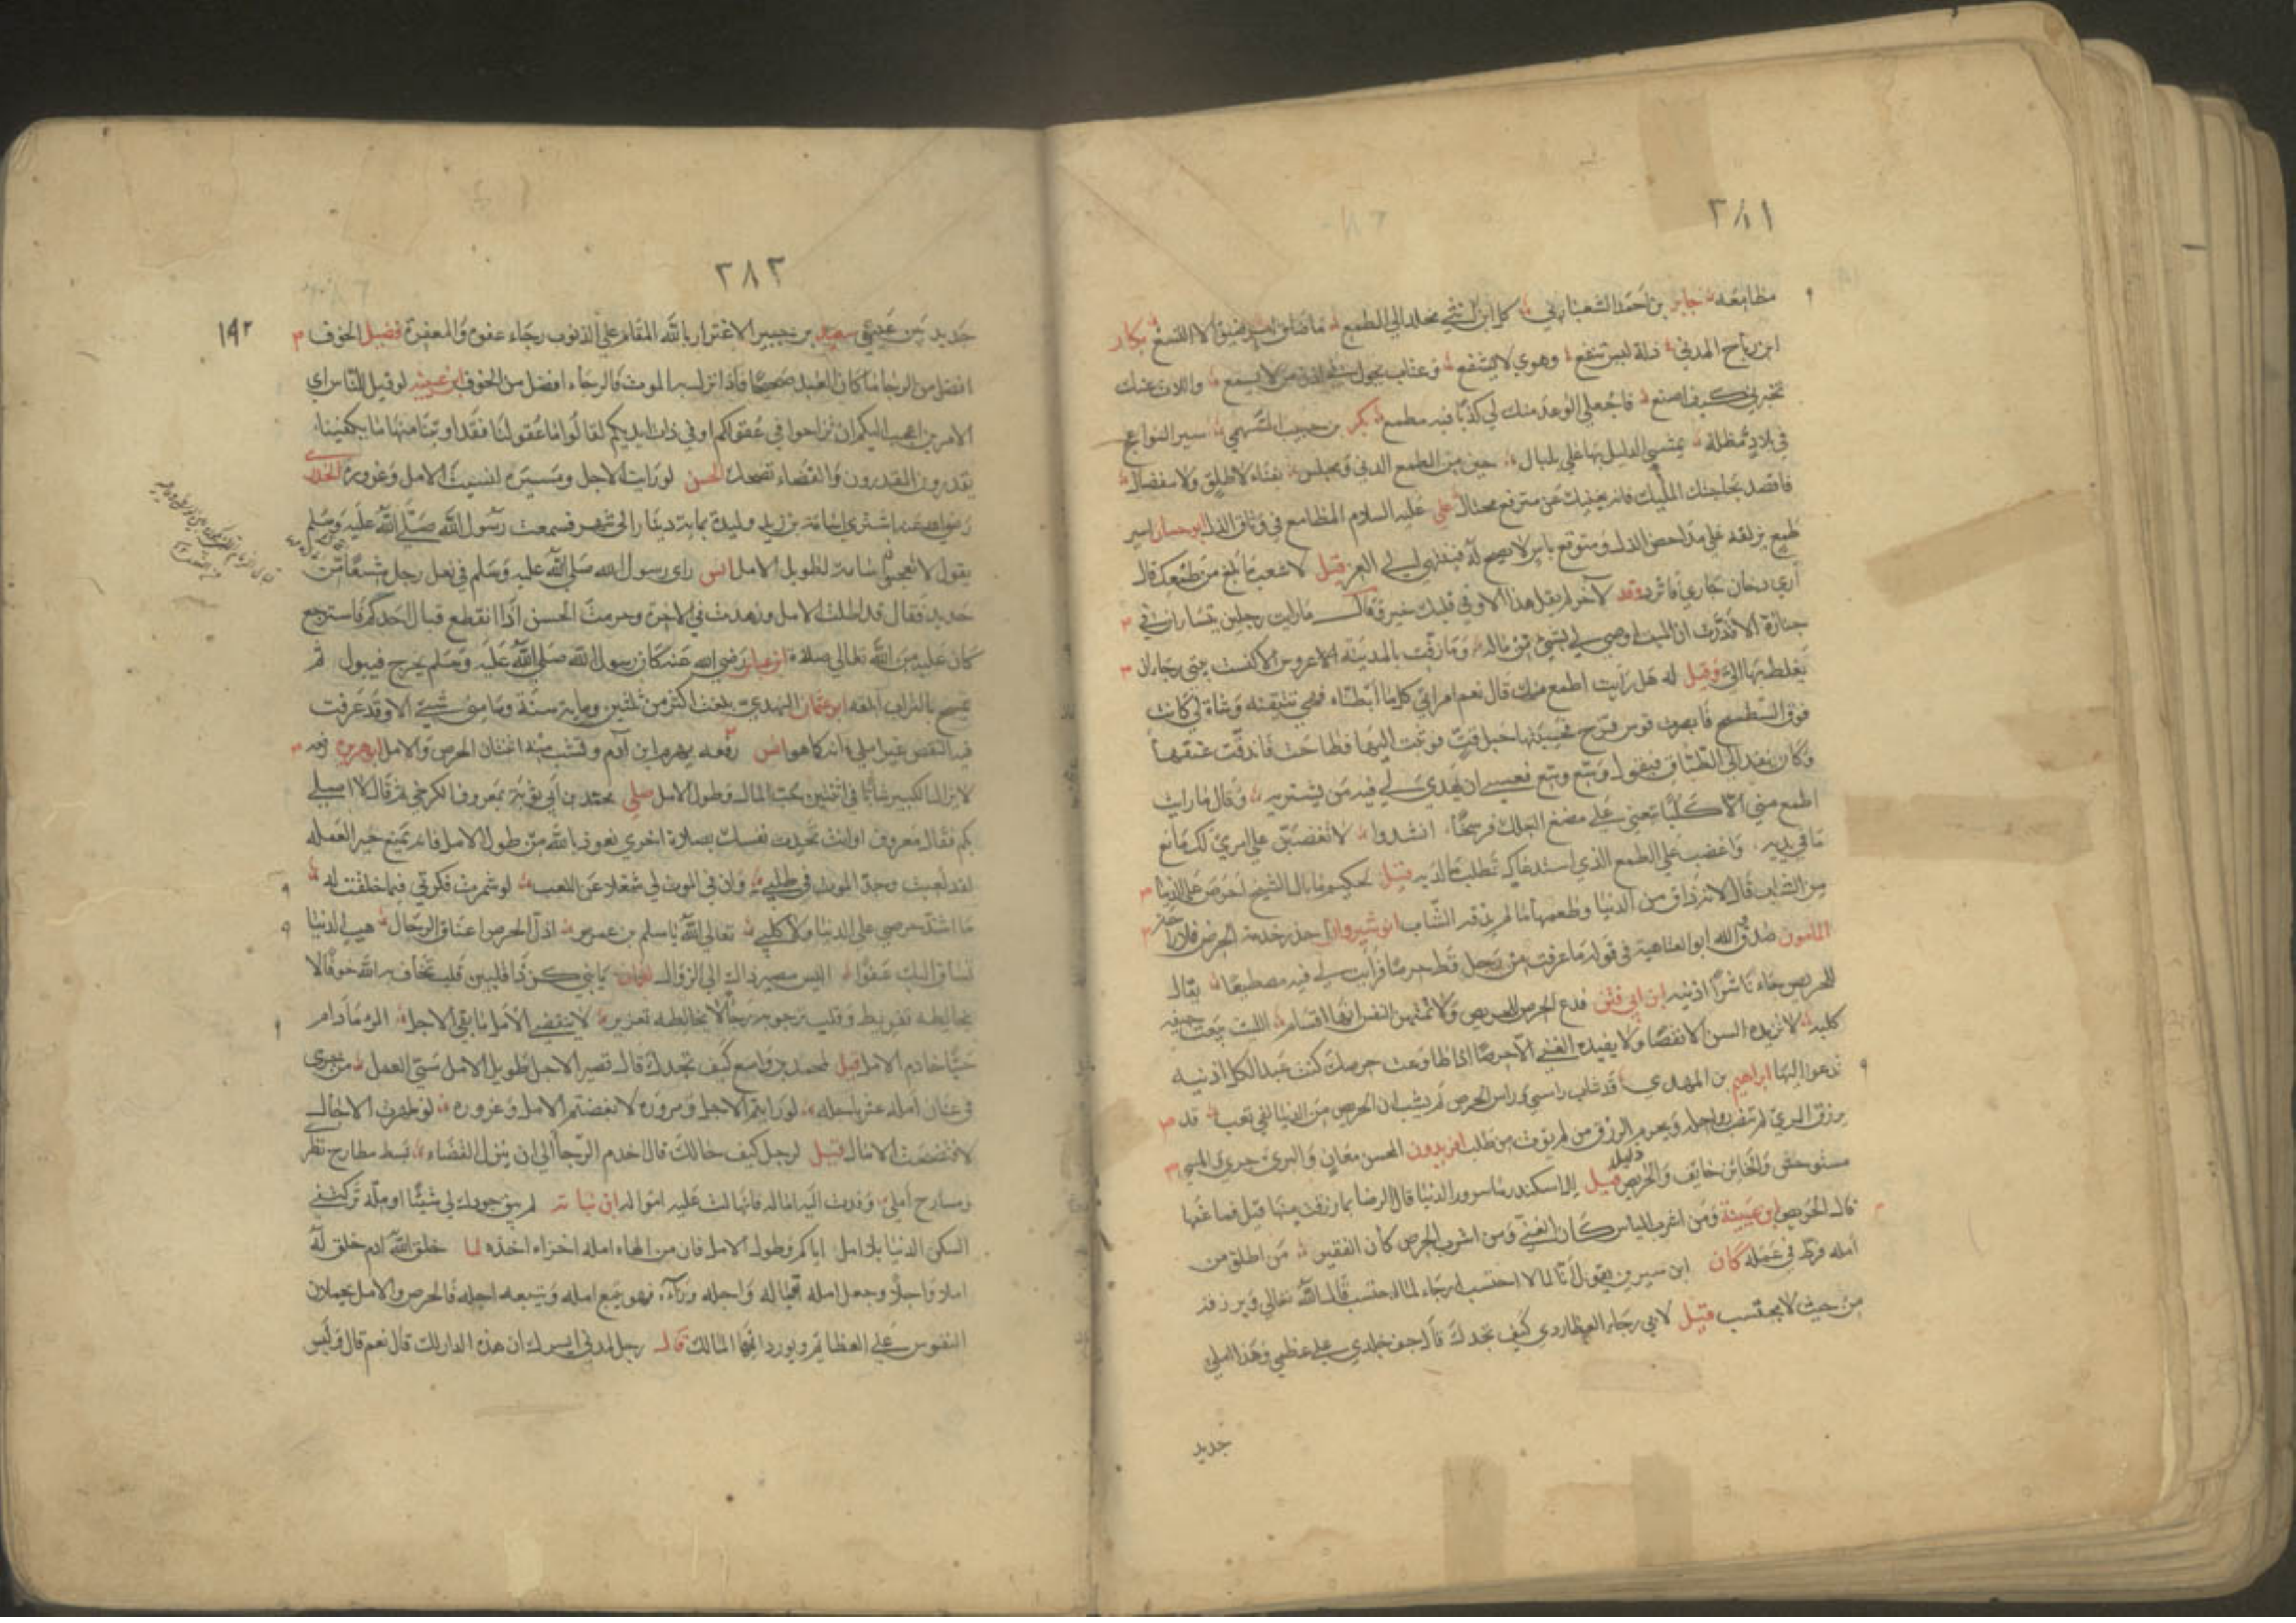 ٣٨١
جابر بن احمد الشعباني كل ابن انثى مخلد الى الطمع ما ضاق امر ضيق الا اتسع بكار
ابن رباح المدني ذلة ليس تنفع وهوى لا يشفع وعتاب يحول في اذن من لا يسمع
تخبرني كيف اصنع فاجعلي الوعد منك لي كذبا فيه مطمع بكر بن حبيب السهمي سير النواعج
في بلاد مظلة يمشي الدليل بها على بلبال خير من الطمع الدني ومجلس بفناء لا طلق ولا مفضال
فاقصد بحاجتك المليك فانه يغنيك عن مترفع مختال علي عليه السلام المطامع في وثاق الذل ابو حسان اسير
طمع يزلقه على مداحض الذل ومتوقع ياس لا يصح له فينتهي الى العز قيل لاشعب ما بلغ من طمعك قال
ارى دخان جاري فاثرد وقد لآخر لم يقل هذا الا وفي قلبك خير وقال ما رايت رجلين يتساران في
جنازة الا قدرت ان الميت اوصى لي بشيء من ماله وما زفت بالمدينة عروس الا كنست بيتي رجاء ان
يغلط بها الي وقيل له هل رايت اطمع منك قال نعم امراتي كلما وشاة لي كانت
فوق السطح فابصرت قوس قزح فحسبتها حبل قت فوثبت اليها فطاحت فاندقت عنقها
وكان يقعد الى فيقول وسع وسع فعسى ان يهدي لي فيه من يشتريه وقال ما رايت
اطمع مني الا كلبا تبعني على مضغ العلك فرسخا انشدوا لا تغضبن على امرئ لك مانع
ما في يديه واغضب على الطمع الذي استدعاك تطلب ما لديه قيل لحكيم ما بال الشيخ احرص على الدنيا
من الشاب قال لانه ذاق من الدنيا وطعمها ما لم يذقه الشاب انوشيروان احذر خدمة الحرص فلا راحة
المامون صدق والله ابو العتاهية في قوله ما عرفت من رجل قط حرصا فرايت لي فيه مصطنعا يقال
للحريص جاء ناشرا اذنيه ابن ابي فنن فدع الحرص للحريص ولا تمتهن النفس انها اقسام الليث يبعث حيفه
كلبه لا تزيده السن الا نقصا ولا يفيده الغنى الا حرصا اذا طاوعت حرصك كنت عبدا لكل دنية
تدعو اليها ابراهيم بن المهدي قد شاب راسي وراس الحرص لم يشب ان الحريص من الدنيا لفي تعب قد
يرزق المرء لم تتعب رواحله ويحرم الرزق من لم يؤت من طلب افريدون المحسن معان والبريء جريء والمسيء
مستوحش والخائن خايف والحريص ذليل قيل للاسكندر ما سرور الدنيا قال الرضا بما رزقت منها قيل فما غمها
قال الحرص ابن عيينة ومن اشرب الياس كان الغني ومن اشرب الحرص كان الفقير من اطلق من
امله فرط في عمله كان ابن سيرين يقول انا لما لا احتسب ارجاء لما احتسب قال الله تعالى ويرزقه
من حيث لا يحتسب قيل لابي رجاء العطاردي كيف تجدك قال جف جلدي على عظمي وهذا املي
جديد
٣٨٢
١٩٢
جديد بين عيني سعيد بن جبير الاغترار بالله المقام على الذنوب رجاء عفوه والمغفرة فضيل الخوف
افضل من الرجاء ما كان العبد صحيحا فاذا نزل به الموت فالرجاء افضل من الخوف ابن عيينة لو قيل للناس اي
الامرين اعجب اليكم ان تزادوا في عقولكم او في ذات ايديكم لقالوا اما عقولنا فقد اوتينا منها ما يكفينا
يقدرون المقدرون والقضاء تضحك الحسن لو رايت الاجل ومسيره لنسيت الامل وغروره
رضي الله عنه اشترى اسامة بن زيد وليدة بماية دينار الى شهر فسمعت رسول الله صلى الله عليه وسلم
يقول الا تعجبون من اسامة لطويل الامل انس راى رسول الله صلى الله عليه وسلم في نعل رجل شسعا من
حديد فقال قد اطلت الامل وزهدت في الاخرة وحرمت الحسن اذا انقطع قبال احدكم فاسترجع
كان عليه من الله تعالى صلاة ابن عباس رضي الله عنه كان رسول الله صلى الله عليه وسلم يخرج فيبول ثم
يتمسح بالتراب ابو عثمان النهدي بلغت اكثر من ثلثين وماية سنة وما مني شيء الا وقد عرفت
فيه النقص غير املي فانه كما هو انس رفعه يهرم ابن آدم وتشب منه اثنتان الحرص والامل ابو هريرة رفعه
لا يزال الكبير شابا في اثنتين حب المال وطول الامل صلى محمد بن ابي توبة بمعروف الكرخي ثم قال لا اصلي
بكم فقال معروف او انت تحدث نفسك بصلاة اخرى نعوذ بالله من طول الامل فانه يمنع خير العمل
لقد لعبت وجد الموت في طلبي وان في الموت لي شغلا عن اللعب لو شمرت فكرتي فيما خلقت له
ما اشتد حرصي على الدنيا ولا كلبي تعالى الله يا سلم بن عمرو اذل الحرص اعناق الرجال هب الدنيا
تساق اليك عفوا اليس مصير ذاك الى الزوال لقمان يا بني كن ذا قلبين قلب تخاف به الله خوفا لا
يخالطه تفريط وقلب ترجو به رجاء لا يخالطه تغرير لا ينقضي الامل ما بقي الاجل المرء ما دام
حيا خادم الامل قيل لمحمد بن واسع كيف تجدك قال قصير الاجل طويل الامل سيئ العمل من جرى
في عنان امله عثر باجله لو رايتم الاجل ومروره لابغضتم الامل وغروره لو ظهرت الاجال
لافتضحت الامال قيل لرجل كيف حالك قال اخدم الرجاء الى ان ينزل القضاء بسط مطارح نظر
ومسارح املي وفدت اليه اماله فانهالت عليه امواله ابن نباتة لم يبق جودك لي شيئا اومله تركتني
اسكن الدنيا بلا امل اياكم وطول الامل فان من الهاه امله اخزاه اخذه لما خلق الله ادم خلق له
املا واجلا وجعل امله امامه واجله وراءه فهو يتبع امله ويتبعه اجله فالحرص والامل يحملان
النفوس على العظائم ويوردانها المهالك قال رجل لمدني ايسرك ان هذه الدار لك قال نعم قال وليس